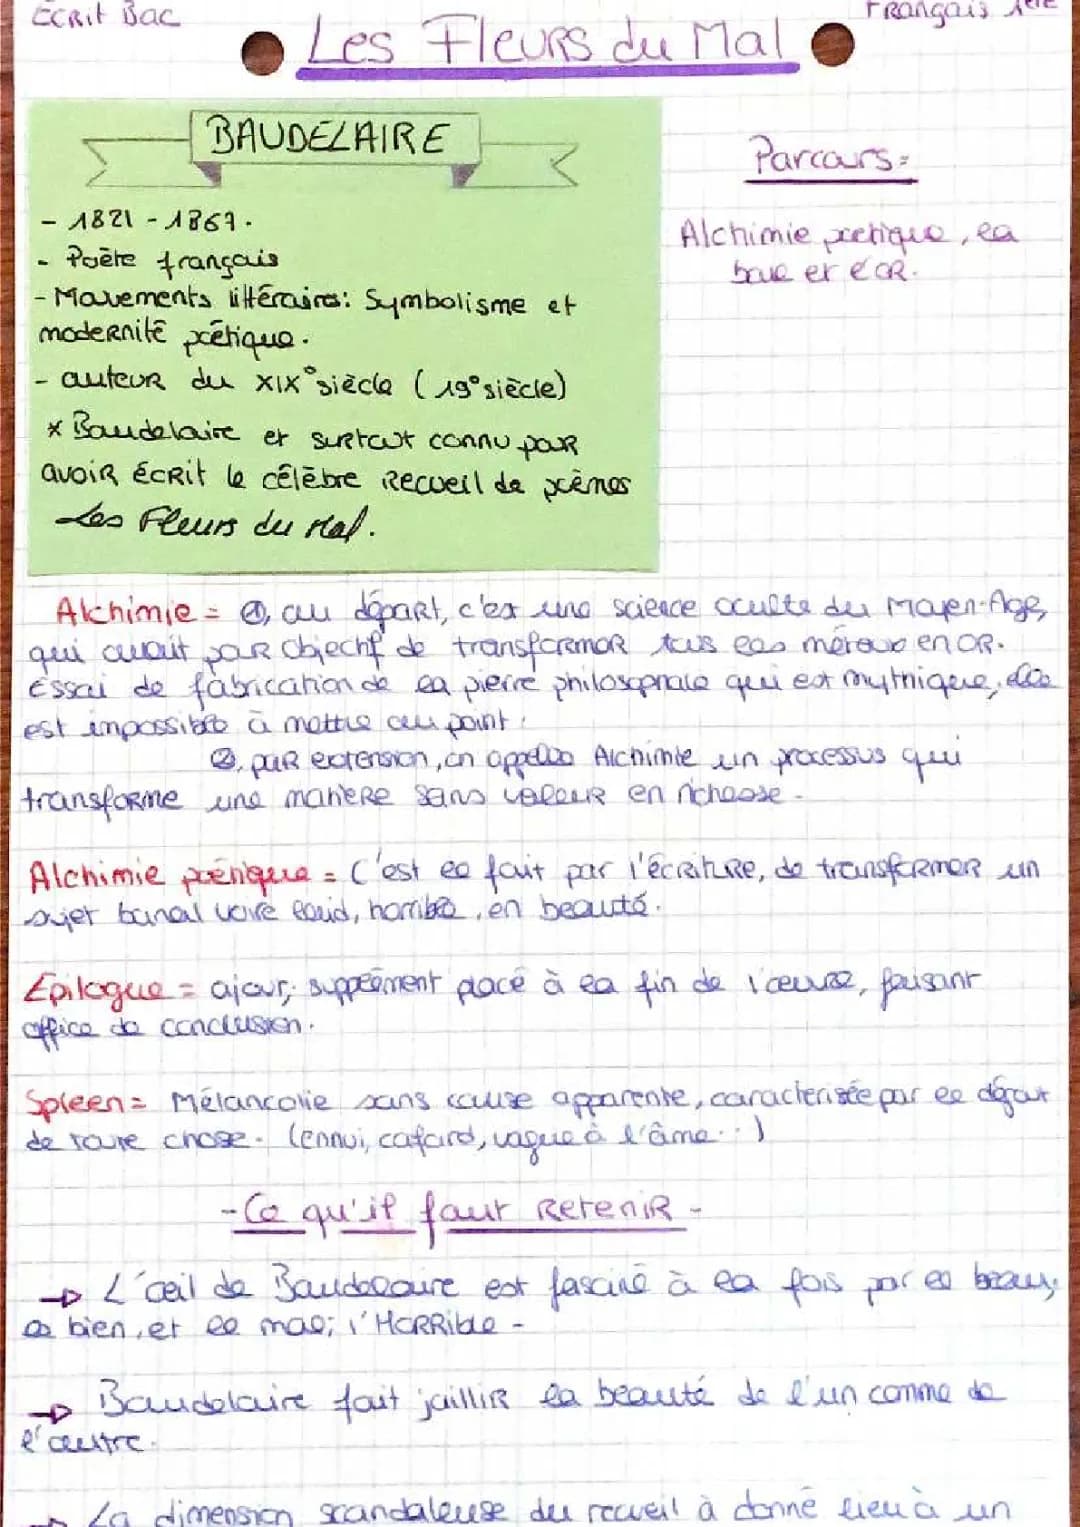 ECRIT BAC
Français 1ère
Les Fleurs du Mal
BAUDELAIRE
Parcours =
- 1821 - 1867.
Alchimie poétique, la
boue et l'OR.
- Poète français
- Mouvements littéraires: Symbolisme et
modernité poétique.
- auteur du XIX° siècle (19° siècle)
* Baudelaire et surtout connu pour
avoir écrit le célèbre recueil de poèmes
Les Fleurs du Mal.
Alchimie = ①, au départ, c'est une science occulte du Moyen-Age,
qui avait pour objectif de transformer tous les métaux en OR.
Essai de fabrication de la pierre philosophale qui est mythique, elle
est impossible à mettre au point.
②, par extension, on appelle Alchimie un processus qui
transforme une matière sans valeur en richesse.
Alchimie poétique = C'est le fait par l'écriture, de transformer un
sujet banal voire laid, horrible, en beauté.
Epilogue = ajout, supplément placé à la fin de l'œuvre, faisant
office de conclusion.
Spleen = Mélancolie sans cause apparente, caractérisée par le dégout
de toute chose. (ennui, cafard, vague à l'âme...)
- Ce qu'il faut retenir -
→ L'œil de Baudelaire est fasciné à la fois par le beau,
le bien, et le mal; l'Horrible -
→ Baudelaire fait jaillir la beauté de l'un comme de
l'autre.
→ La dimension scandaleuse du recueil à donné lieu à un